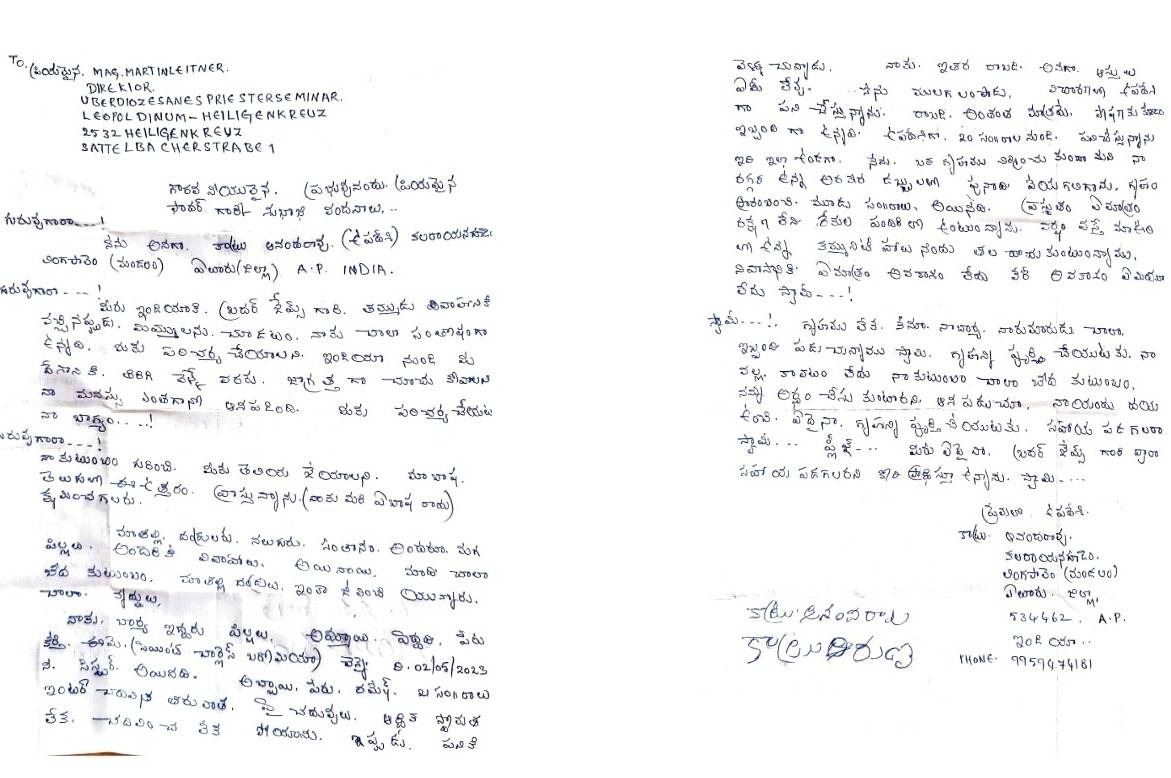 To. ప్రియమైన. MAG. MARTIN LEITNER.
DIREKTOR.
UBERDIOZESANES PRIESTERSEMINAR.
LEOPOLDINUM-HEILIGENKREUZ
2532 HEILIGENKREUZ
SATTELBACHERSTRABE 1
గౌరవనీయులైన. ప్రభువునందు. ప్రియమైన
ఫాదర్ గారికి శుభాభి వందనాలు...
గురువుగారూ...!
నేను అనగా. కాట్రు ఆనందరావు. (ఉపదేశి) కలరాయనగూడెం
లింగపాలెం (మండలం) ఏలూరు (జిల్లా) A.P. INDIA.
గురువుగారూ...!
మీరు ఇండియాకి. బ్రదర్ జేమ్స్ గారి. తమ్ముడు వివాహనికి
వచ్చినప్పుడు. మిమ్ములను. చూడటం. నాకు చాలా సంతోషంగా
ఉన్నది. మీకు పరిచర్య చేయాలని. ఇండియా నుండి మీ
దేశానికి. తిరిగి వెళ్ళే వరకు. జాగ్రత్తగా చూచు కోవాలని
నా మనస్సు ఎంతగానో ఆశపడింది. మీకు పరిచర్య చేయుట
నా భాగ్యం...!
గురువుగారూ...!
నా కుటుంబం గురించి. మీకు తెలియ జేయాలని. మా భాష.
తెలుగులో ఈ ఉత్తరం. వ్రాస్తున్నాను. (నాకు మరి ఏ భాష రాదు)
క్షమించగలరు.
మాతల్లి, దండ్రులకు. నలుగురు. సంతానం. అందరూ. మగ
పిల్లలు. అందరికి వివాహాలు. అయినాయి, మాది చాలా
బేద కుటుంబం. మాతల్లి దండ్రులు, ఇంకా జీవించి యున్నారు.
చాలా. వృద్ధులు,
నాకు, భార్య ఇద్దరు పిల్లలు. అమ్మాయి. పెద్దది. పేరు
కీర్తి. ఈమె. (సెయింట్ చార్లెస్ బరోమియా) వెళ్ళె ది. 02/05/2023
న. సిస్టర్. అయినది. అబ్బాయి. పేరు. రమేష్. 2 సం॥రాలు
ఇంటర్ చదివిన తరువాత. పై చదువులు. ఆర్థిక స్తొమత
లేక. చదివించ లేక పోయాను. ఇప్పుడు. పనికి
వెళ్ళు చున్నాడు. నాకు. ఇతర రాబడి. అనగా. ఆస్తులు
ఏమీ లేవు. నేను ములగలంపాడు, విచారణలో ఉపదేశి
గా పని చేస్తున్నాను. రాబడి. అంతంత మాత్రమే. పోషణకు కూడా
ఇబ్బంది గా ఉన్నది. ఉపదేశిగా. 20 సం॥రాల నుండి. పనిచేస్తున్నాను
ఇది ఇలా ఉండగా. నేను. ఒక గృహము నిర్మించు కుందా మని నా
దగ్గర ఉన్న అరకొర డబ్బులతో పునాది వేయగలిగాను, గృహం
ఆరంభించి. మూడు సం॥రాలు, అయినది. ప్రస్తుతం ఏమాత్రం
రక్షణ లేని రేకుల పందిరి లో ఉంటున్నాను. వర్షం వస్తే మాఊరి
లో ఉన్న కమ్యునిటీ హాలు నందు తల దాచుకుంటున్నాము,
నివాసానికి ఏమాత్రం అవకాశం లేదు వేరే అవకాశం ఏమియూ
లేదు స్వామీ...!
స్వామీ...!. గృహము లేక. నేనూ. నాభార్య. నాకుమారుడు చాలా.
ఇబ్బంది పడుచున్నాము స్వామి. గృహన్ని పూర్తి చేయుటకు. నా
వల్ల. కావటం లేదు నాకుటుంబం చాలా బేద కుటుంబం.
నన్ను అర్థం చేసు కుంటారని, ఆశ పడుచూ. నాయందు దయ
ఉంచి. ఏదైనా. గృహన్ని పూర్తి చేయుటకు. సహాయ పడగలరా
స్వామీ... ప్లీజ్... మీరు ఏదైనా. బ్రదర్ జేమ్స్ గారి ద్వారా
సహాయ పడగలరని ప్రార్థిస్తూ ఉన్నాను. స్వామీ....
ప్రేమతో ఉపదేశి.
కాట్రు. ఆనందరావు.
కలరాయనగూడెం.
లింగపాలెం (మండలం)
ఏలూరు. జిల్లా,
534462. A.P.
ఇండియా..
PHONE: 9959474181
కాట్రు ఆనందరావు
కాట్రు అరుణ